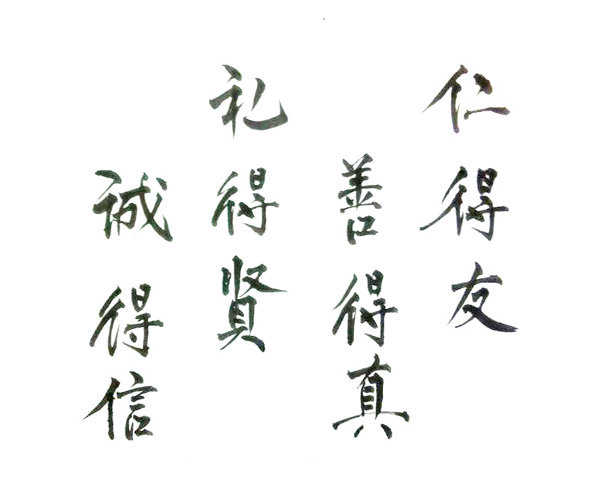 仁得友
善得真
礼得贤
诚得信